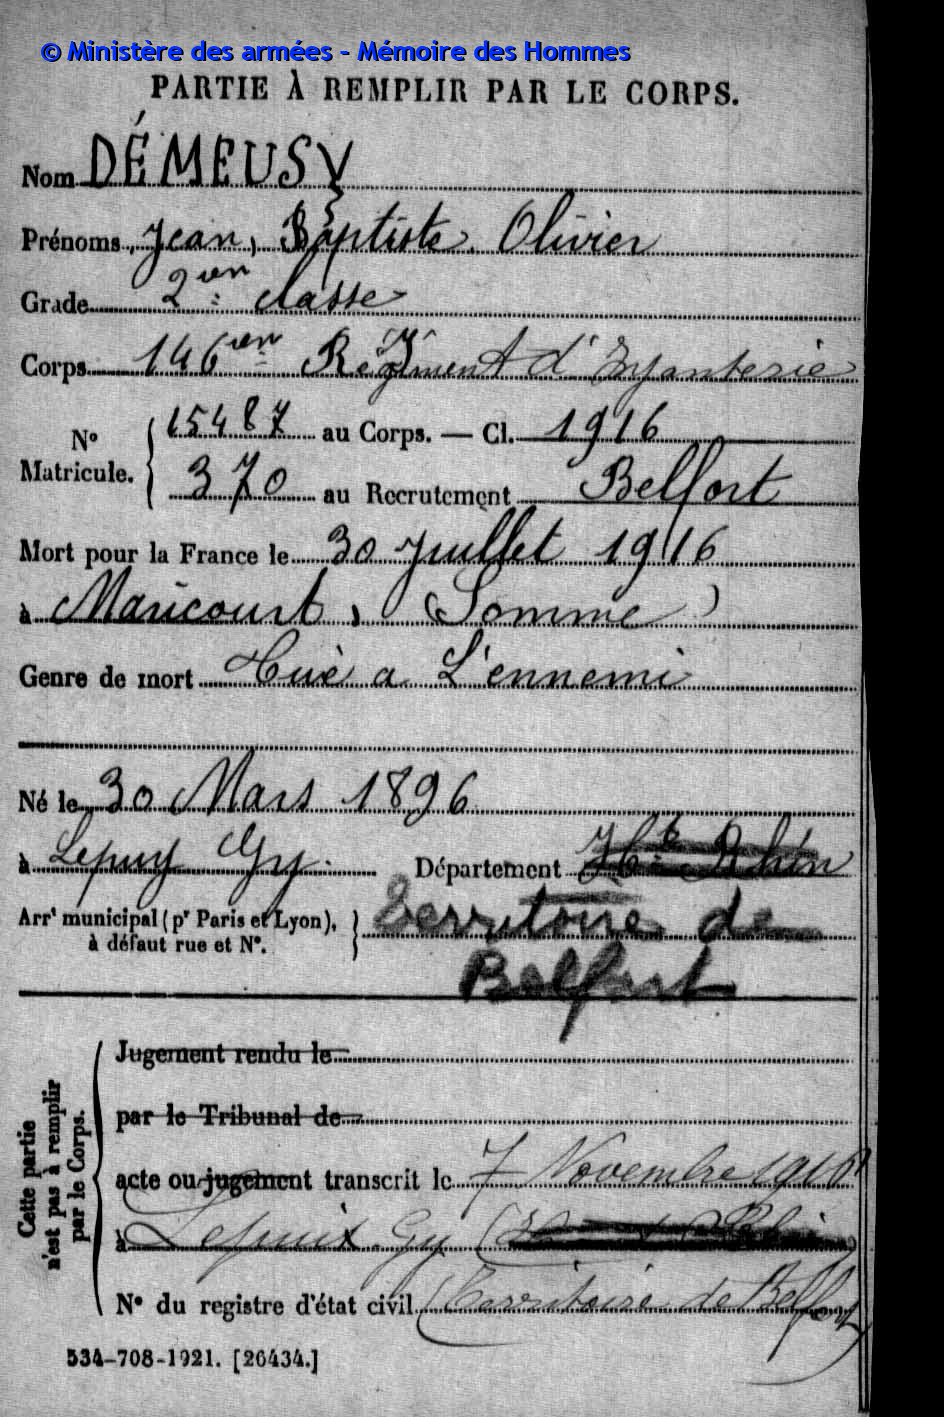 © Ministère des armées - Mémoire des Hommes
PARTIE À REMPLIR PAR LE CORPS.
Nom DÉMEUSY
Prénoms Jean, Baptiste Olivier
Grade 2ien classe
Corps 146ien Régiment d'Infanterie
N° Matricule. { 15487 au Corps. — Cl. 1916
370 au Recrutement Belfort
Mort pour la France le 30 Juillet 1916
à Maricourt, (Somme)
Genre de mort Tué a L'ennemi
Né le 30 Mars 1896
à Lepuy Gy. Département Ht Rhin
Arrt municipal (pr Paris et Lyon), à défaut rue et N°. } Territoire de
Belfort
Cette partie n'est pas à remplir par le Corps.
Jugement rendu le
par le Tribunal de
acte ou jugement transcrit le 7 Novembre 1916
à Lepuix-Gy (
N° du registre d'état civil (Territoire de Belfort)
534-708-1921. [26434.]